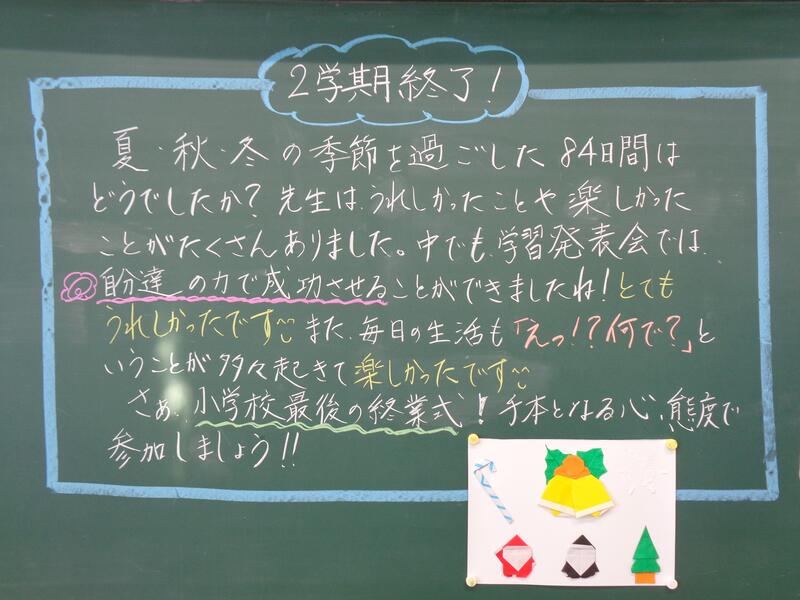 2学期終了!
夏・秋・冬の季節を過ごした84日間は
どうでしたか?先生は、うれしかったことや楽しかった
ことがたくさんありました。中でも、学習発表会では、
自分達の力で成功させることができましたね!とても
うれしかったです また、毎日の生活も「えっ!?何で?」と
いうことが多々起きて楽しかったです
さぁ、小学校最後の終業式!手本となる心、態度で
参加しましょう!!